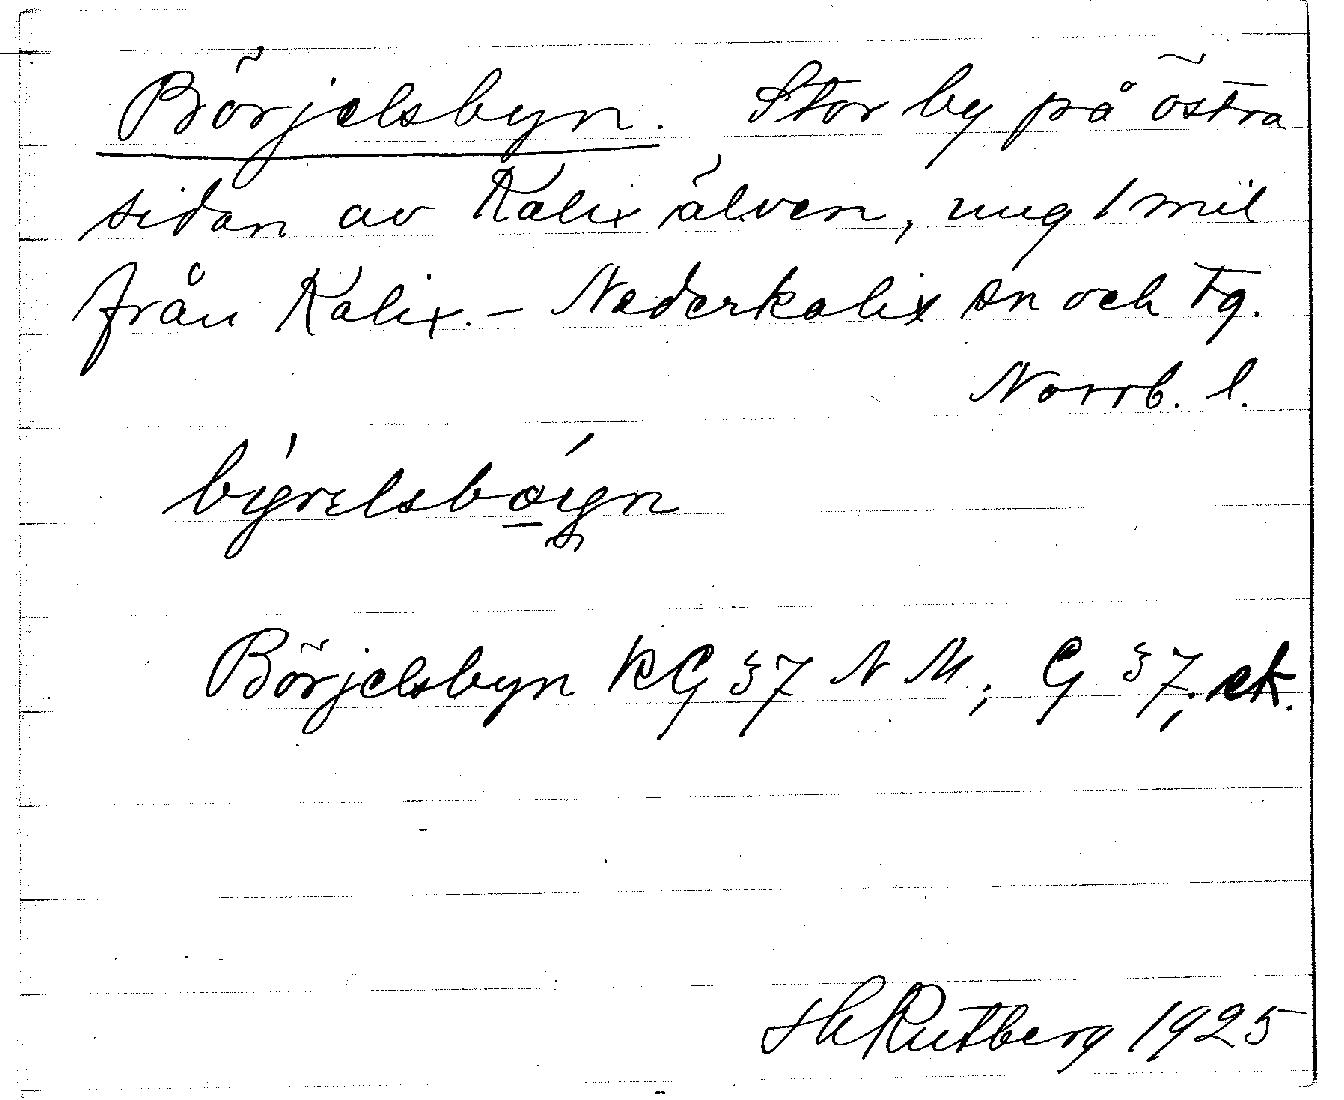 Börjelsbyn. Stor by på östra
sidan av Kalix älven, ung 1 mil
från Kalix. – Nederkalix sn och tg.
Norrb. l.
býrelsbǫ́yn
Börjelsbyn KG 37 N M; G 37; ek.
H Rutberg 1925